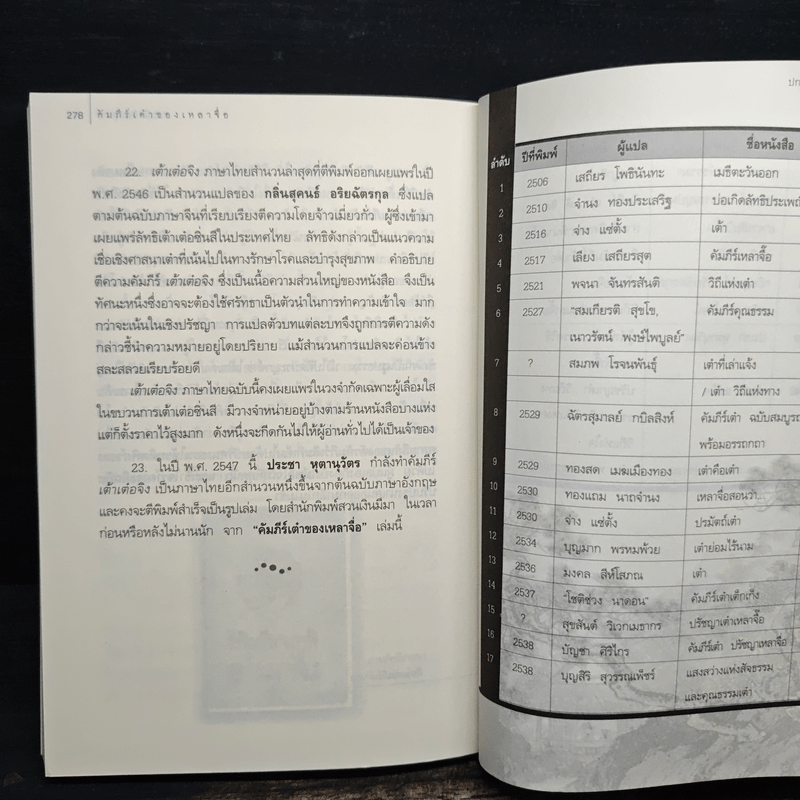 278 คัมภีร์เต๋าของเหลาจื่อ
22. เต้าเต๋อจิง ภาษาไทยสำนวนล่าสุดที่ตีพิมพ์ออกเผยแพร่ในปี
พ.ศ. 2546 เป็นสำนวนแปลของ กลิ่นสุคนธ์ อริยฉัตรกุล ซึ่งแปล
ตามต้นฉบับภาษาจีนที่เรียบเรียงตีความโดยจ้าวเมี่ยวกั่ว ผู้ซึ่งเข้ามา
เผยแพร่ลัทธิเต้าเต๋อซิ่นสีในประเทศไทย ลัทธิดังกล่าวเป็นแนวความ
เชื่อเชิงศาสนาเต๋าที่เน้นไปในทางรักษาโรคและบำรุงสุขภาพ คำอธิบาย
ตีความคัมภีร์ เต้าเต๋อจิง ซึ่งเป็นเนื้อความส่วนใหญ่ของหนังสือ จึงเป็น
ทัศนะหนึ่งซึ่งอาจจะต้องใช้ศรัทธาเป็นตัวนำในการทำความเข้าใจ มาก
กว่าจะเน้นในเชิงปรัชญา การแปลตัวบทแต่ละบทจึงถูกการตีความดัง
กล่าวชี้นำความหมายอยู่โดยปริยาย แม้สำนวนการแปลจะค่อนข้าง
สละสลวยเรียบร้อยดี
เต้าเต๋อจิง ภาษาไทยฉบับนี้คงเผยแพร่ในวงจำกัดเฉพาะผู้เลื่อมใส
ในขบวนการเต้าเต๋อซิ่นสี มีวางจำหน่ายอยู่บ้างตามร้านหนังสือบางแห่ง
แต่ก็ตั้งราคาไว้สูงมาก ดังหนึ่งจะกีดกันไม่ให้ผู้อ่านทั่วไปได้เป็นเจ้าของ
23. ในปี พ.ศ. 2547 นี้ ประชา หุตานุวัตร กำลังทำคัมภีร์
เต้าเต๋อจิง เป็นภาษาไทยอีกสำนวนหนึ่งขึ้นจากต้นฉบับภาษาอังกฤษ
และคงจะตีพิมพ์สำเร็จเป็นรูปเล่ม โดยสำนักพิมพ์สวนเงินมีมา ในเวลา
ก่อนหรือหลังไม่นานนัก จาก “คัมภีร์เต๋าของเหลาจื่อ” เล่มนี้
ลำดับ ปีที่พิมพ์ ผู้แปล ชื่อหนังสือ
1 2506 เสถียร โพธินันทะ เมธีตะวันออก
2 2510 จำนง ทองประเสริฐ บ่อเกิดลัทธิประเพณี
3 2516 จ่าง แซ่ตั้ง เต้า
4 2517 เลียง เสถียรสุต คัมภีร์เหลาจื๊อ
5 2521 พจนา จันทรสันติ วิถีแห่งเต๋า
6 2527 “สมเกียรติ สุขโข, คัมภีร์คุณธรรม
เนาวรัตน์ พงษ์ไพบูลย์”
7 ? สมภพ โรจนพันธุ์ เต๋าที่เล่าแจ้ง
/ เต๋า วิถีแห่งทาง
8 2529 ฉัตรสุมาลย์ กบิลสิงห์ คัมภีร์เต๋า ฉบับสมบูรณ์
พร้อมอรรถกถา
9 2529 ทองสด เมฆเมืองทอง เต๋าคือเต๋า
10 2530 ทองแถม นาถจำนง เหลาจื่อสอนว่า..
11 2530 จ่าง แซ่ตั้ง ปรมัตถ์เต๋า
12 2534 บุญมาก พรหมพ้วย เต๋าย่อมไร้นาม
13 2536 มงคล สีห์โสภณ เต๋า
14 2537 “โชติช่วง นาดอน” คัมภีร์เต๋าเต็กเก็ง
15 ? สุขสันต์ วิเวกเมธากร ปรัชญาเต๋าเหลาจื๊อ
16 2538 บัญชา ศิริไกร คัมภีร์เต๋า ปรัชญาเหลาจื๊อ
17 2538 บุญสิริ สุวรรณเพ็ชร์ แสงสว่างแห่งสัจธรรม
และคุณธรรมเต๋า